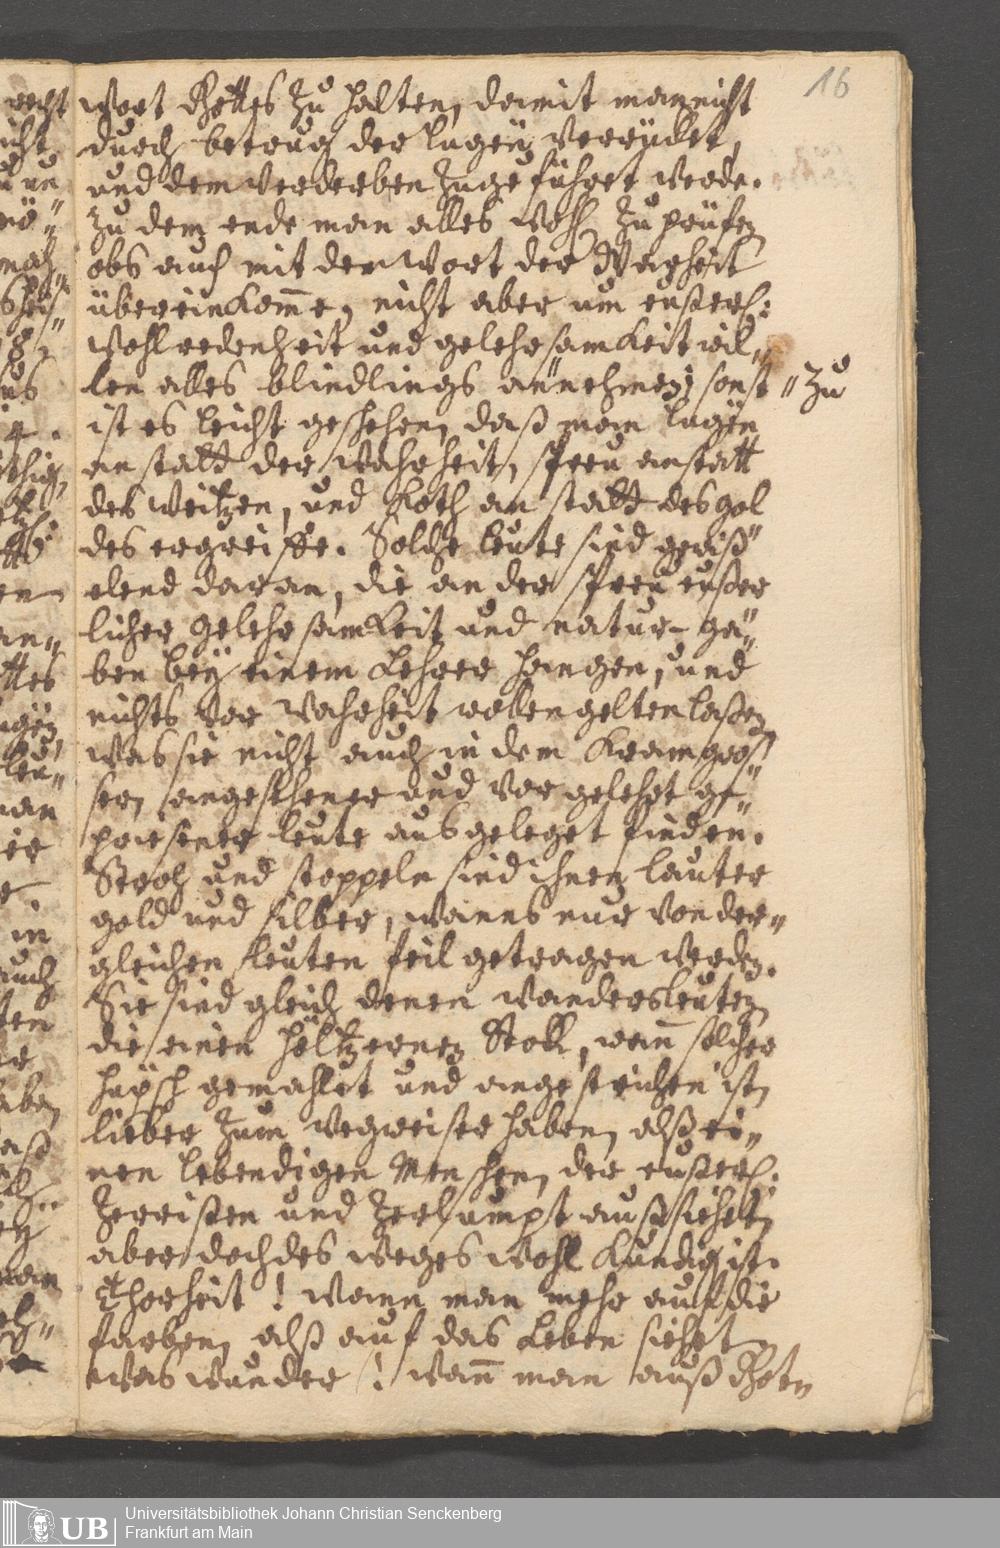 16
wort Gottes zu halten, damit man nicht
durch betrug der lugen verrücket,
und dem verderben zugeführet werde.
zu dem ende man alles wohl zu prüfen
obs auch mit dem wort der Warheit
übereinkom̄e, nicht aber um eußerl:
wohlredenheit und gelehrsamkeit wil„
len alles blindlings anneHmen; sonst „zu
ist es leicht geschehen, daß man lugen
anstatt der wahrheit, spreu anstatt
des weitzen, und Koth anstatt des gol
des ergreiffe. Solche leute sind gewiß
elend daran, die an der spreu eußer
licher gelehrsamkeit und natur-ga„
ben bey einem Lehrer hangen, und
nichts vor wahrheit wollen gelten laßen
was sie nicht auch in dem Kram gros„
ser, angesehener und vor gelehrt ge„
priesener leute ausgeleget finden.
Stroh und stoppeln sind ihnen lauter
gold und silber, wanns nur von der„
gleichen leuten feil getragen werden.
Sie sind gleich denen wandersleuten
die einen höltzernen Stock, wañ solcher
hüpsch gemahlet und angestrichen ist,
lieber zum wegweiser haben, alß ei„
nen lebendigen Menschen, der eußerl.
zerrissen und zerlumpt außsiehet,
aber doch des weges wohl kundig ist.
Thorheit! wann man mehr auf die
farben, alß auf das Leben siehet
was wunder! wañ man auß Gottes
Universitätsbibliothek Johann Christian Senckenberg
Frankfurt am Main
UB